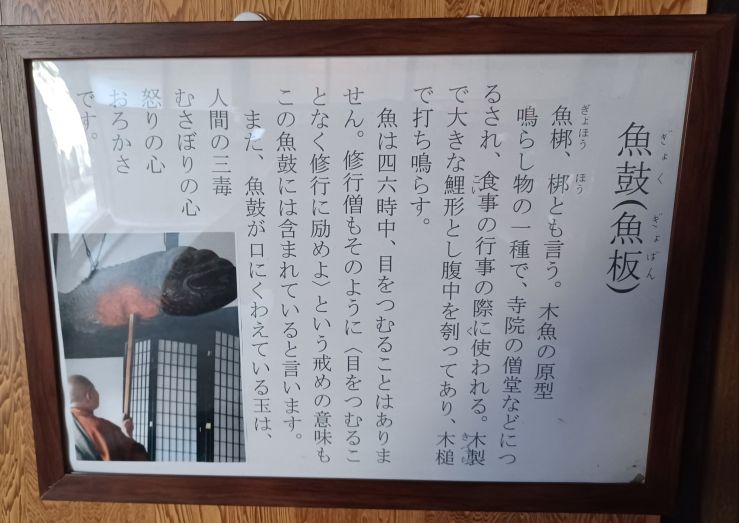 魚鼓(魚板)
ぎょく ぎょばん
魚梆、梆とも言う。木魚の原型
ぎょほう ほう
鳴らし物の一種で、寺院の僧堂などにつ
るされ、食事の行事の際に使われる。木製
で大きな鯉形とし腹中を刳ってあり、木槌
こい く きづち
で打ち鳴らす。
魚は四六時中、目をつむることはありま
せん。修行僧もそのように〈目をつむるこ
となく修行に励めよ〉という戒めの意味も
この魚鼓には含まれていると言います。
また、魚鼓が口にくわえている玉は、
人間の三毒
むさぼりの心
怒りの心
おろかさ
です。